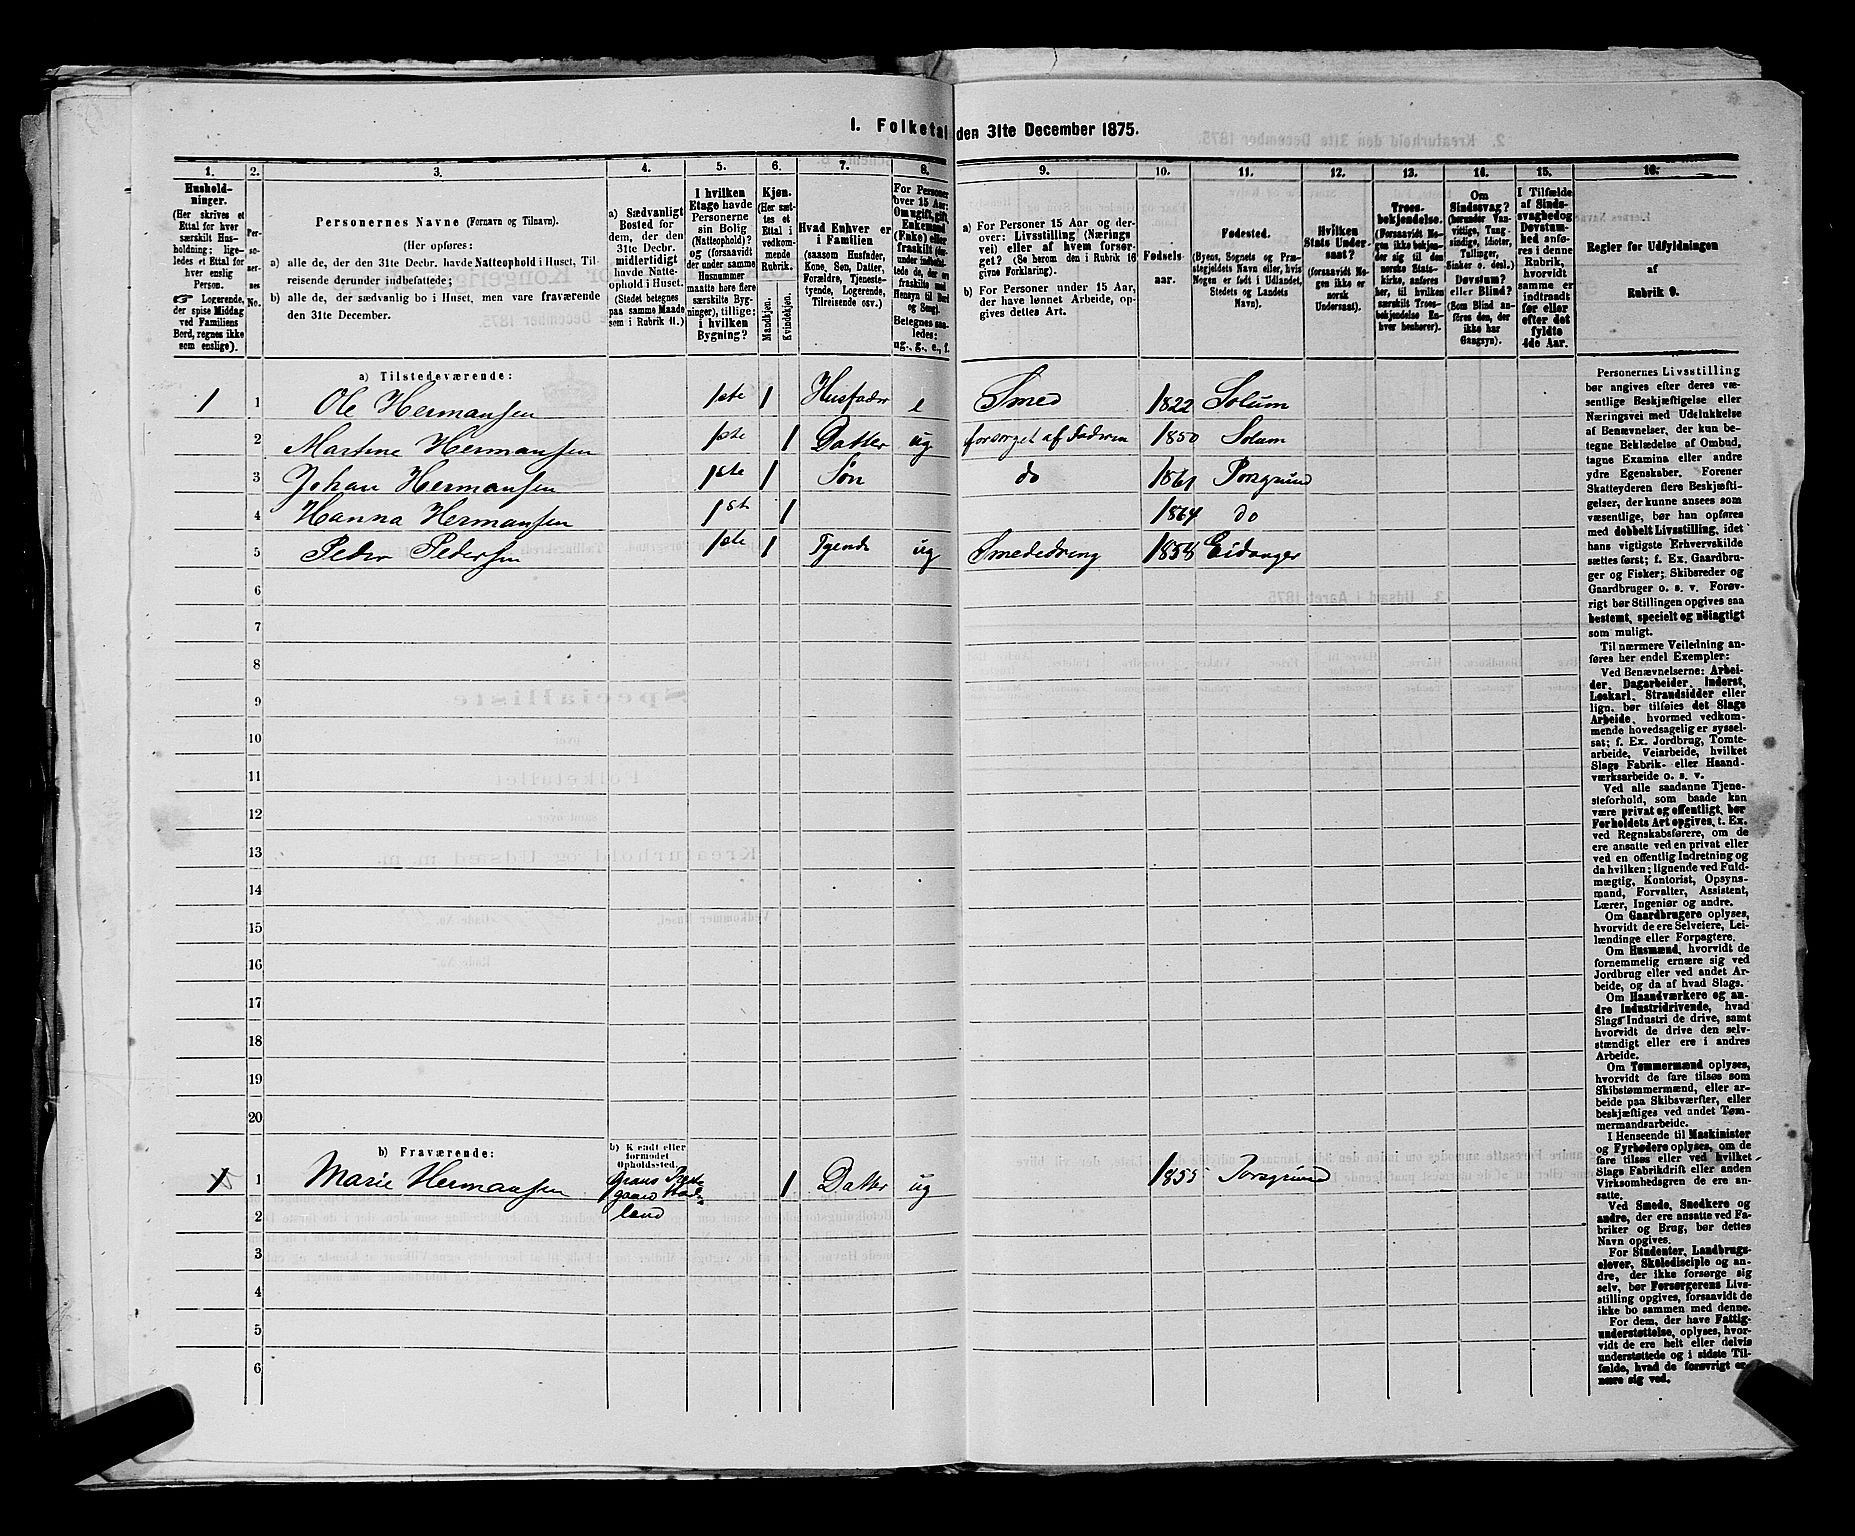 I. Folketal den 31te December 1875.
1. 2. 3. 4. 5. 6. 7. 8. 9. 10. 11. 12. 13. 14. 15. 16.
Hushold-
ninger.
(Her skrives et
Ettal for hver
særskilt Hus-
holdning; lige-
ledes et Ettal for
hver enslig
Person.
☞ Logerende,
der spise Middag
ved Familiens
Bord, regnes ikke
som enslige).
Per-
so-
ner-
nes
No.
Personernes Navne (Fornavn og Tilnavn).
(Her opføres:
a) alle de, der den 31te Decbr. havde Natteophold i Huset, Til-
reisende derunder indbefattede;
b) alle de, der sædvanlig bo i Huset, men vare fraværende
den 31te December.
a) Sædvanligt
Bosted for
dem, der den
31te Decbr.
midlertidigt
havde Natte-
ophold i Huset.
(Stedet betegnes
paa samme Maade
som i Rubrik 11.)
I hvilken
Etage havde
Personerne
sin Bolig
(Natteophold)?
og (forsaavidt
der under samme
Husnummer
maatte høre flere
særskilte Byg-
ninger), tillige:
i hvilken
Bygning?
Kjøn.
(Her sæt-
tes et
Ettal i
vedkom-
mende
Rubrik.
Mandkjøn.
Kvindekjøn.
Hvad Enhver er
i Familien
(saasom Husfader,
Kone, Søn, Datter,
Forældre, Tjeneste-
tyende, Logerende,
Tilreisende osv.)
For Personer
over 15 Aar:
Om ugift, gift,
Enkemand
(Enke) eller
fraskilt
Betegnes saa-
ledes:
ug., g., e., f.
a) For Personer 15 Aar og der-
over: Livsstilling (Nærings
vei) eller af hvem forsør-
get? (Se herom den i Rubrik 16
givne Forklaring).
b) For Personer under 15 Aar,
der have lønnet Arbeide, op-
gives dettes Art.
Fødsels-
aar.
Fødested.
(Byens, Sognets og Præ-
stegjeldets Navn eller, hvis
Nogen er født i Udlandet,
Stedets og Landets
Navn).
Hvilken
Stats Under-
saat?
(forsaavidt No-
gen ikke er
norsk
Undersaat).
Troes-
bekjendelse.
(Forsaavidt No-
gen ikke bekjen-
der sig til den
norske Stats-
kirke, anføres
her, til hvilken
særskilt Troes-
bekjendelse En-
hver henhører).
Om
Sindssvag?
(herunder Van-
vittige, Tung-
sindige, Idioter,
Tullinger,
Sinker o. desl.)
Døvstum?
eller Blind?
(Som Blind an-
føres den, der
ikke har
Gangsyn).
I Tilfælde
af Sinds-
svaghed og
Døvstum-
hed anfø-
res i denne
Rubrik,
hvorvidt
samme er
indtraadt
før eller
efter det
fyldte
4de Aar.
Regler for Udfyldningen
af
Rubrik 9.
a) Tilstedeværende:
1 1 Ole Hermansen 1ste 1 Husfader e Smed 1822 Solum
2 Martine Hermansen 1ste 1 Datter ug forsørget af Faderen 1850 Solum
3 Johan Hermansen 1ste 1 Søn do 1861 Porsgrund
4 Hanna Hermansen 1st 1 1864 do
5 Peder Pedersen 1ste 1 Tyende ug Smededreng 1858 Eidanger
6
7
8
9
10
11
12
13
14
15
16
17
18
19
20
b) Fraværende:
b) Kjendt eller
formodet
Opholdssted.
1 Marie Hermansen
land
1 Datter ug 1855 Porsgrund
2
3
4
5
6
Personernes Livsstilling
bør angives efter deres væ-
sentlige Beskjæftigelse eller
Næringsvei med Udelukkelse
af Benævnelser, der kun be-
tegne Beklædelse af Ombud,
tagne Examina eller andre
ydre Egenskaber. Forener
Skatteyderen flere Beskjæfti-
gelser, der kunne ansees som
væsentlige, bør han opføres
med dobbelt Livsstilling, idet
hans vigtigste Erhvervskilde
sættes først; f. Ex. Gaardbru-
ger og Fisker; Skibsreder og
Gaardbruger o. s. v. Forøv-
rigt bør Stillingen opgives saa
bestemt, specielt og nøiagtigt
som muligt.
Til nærmere Veiledning an-
føres her endel Exempler:
Ved Benævnelserne: Arbei-
der, Dagarbeider, Inderst,
Løskarl, Strandsidder eller
lign. bør tilføies det Slags
Arbeide, hvormed vedkom-
mende hovedsagelig er syssel-
sat; f. Ex. Jordbrug, Tomte-
arbeide, Veiarbeide, hvilket
Slags Fabrik- eller Haand-
værksarbeide o. s. v.
Ved alle saadanne Tjene-
steforhold, som baade kan
være privat og offentligt, bør
Forholdets Art opgives, t. Ex.
ved Regnskabsførere, om de
ere ansatte ved en privat eller
ved en offentlig Indretning og
da hvilken; lignende ved Fuld-
mægtig, Kontorist, Opsyns-
mand, Forvalter, Assistent,
Lærer, Ingeniør og andre.
Om Gaardbrugere oplyses,
hvorvidt de ere Selveiere, Lei-
lændinge eller Forpagtere.
Om Husmænd, hvorvidt de
fornemmelig ernære sig ved
Jordbrug eller ved andet Ar-
beide, og da af hvad Slags.
Om Haandværkere og an-
dre Industridrivende, hvad
Slags Industri de drive, samt
hvorvidt de drive den selv-
stændigt eller ere i andres
Arbeide.
Om Tømmermænd oplyses,
hvorvidt de fare tilsøs som
Skibstømmermænd, eller ar-
beide paa Skibsværfter, eller
beskjæftiges ved andet Tøm-
mermandsarbeide.
I Henseende til Maskinister
og Fyrbødere oplyses, om de
fare tilsøs eller ved hvilket
Slags Fabrikdrift eller anden
Virksomhedsgren de ere an-
satte.
Ved Smede, Snedkere og
andre, der ere ansatte ved Fa-
briker og Brug, bør dettes
Navn opgives.
For Studenter, Landbrugs-
elever, Skoledisciple og an-
dre, der ikke forsørge sig
selv, bør Forsørgerens Livs-
stilling opgives, forsaavidt de
ikke bo sammen med denne.
For dem, der have Fattig-
understøttelse, oplyses, hvor-
vidt de ere helt eller delvis
understøttede og i sidste Til-
fælde, hvad de forøvrigt er-
nære sig ved.